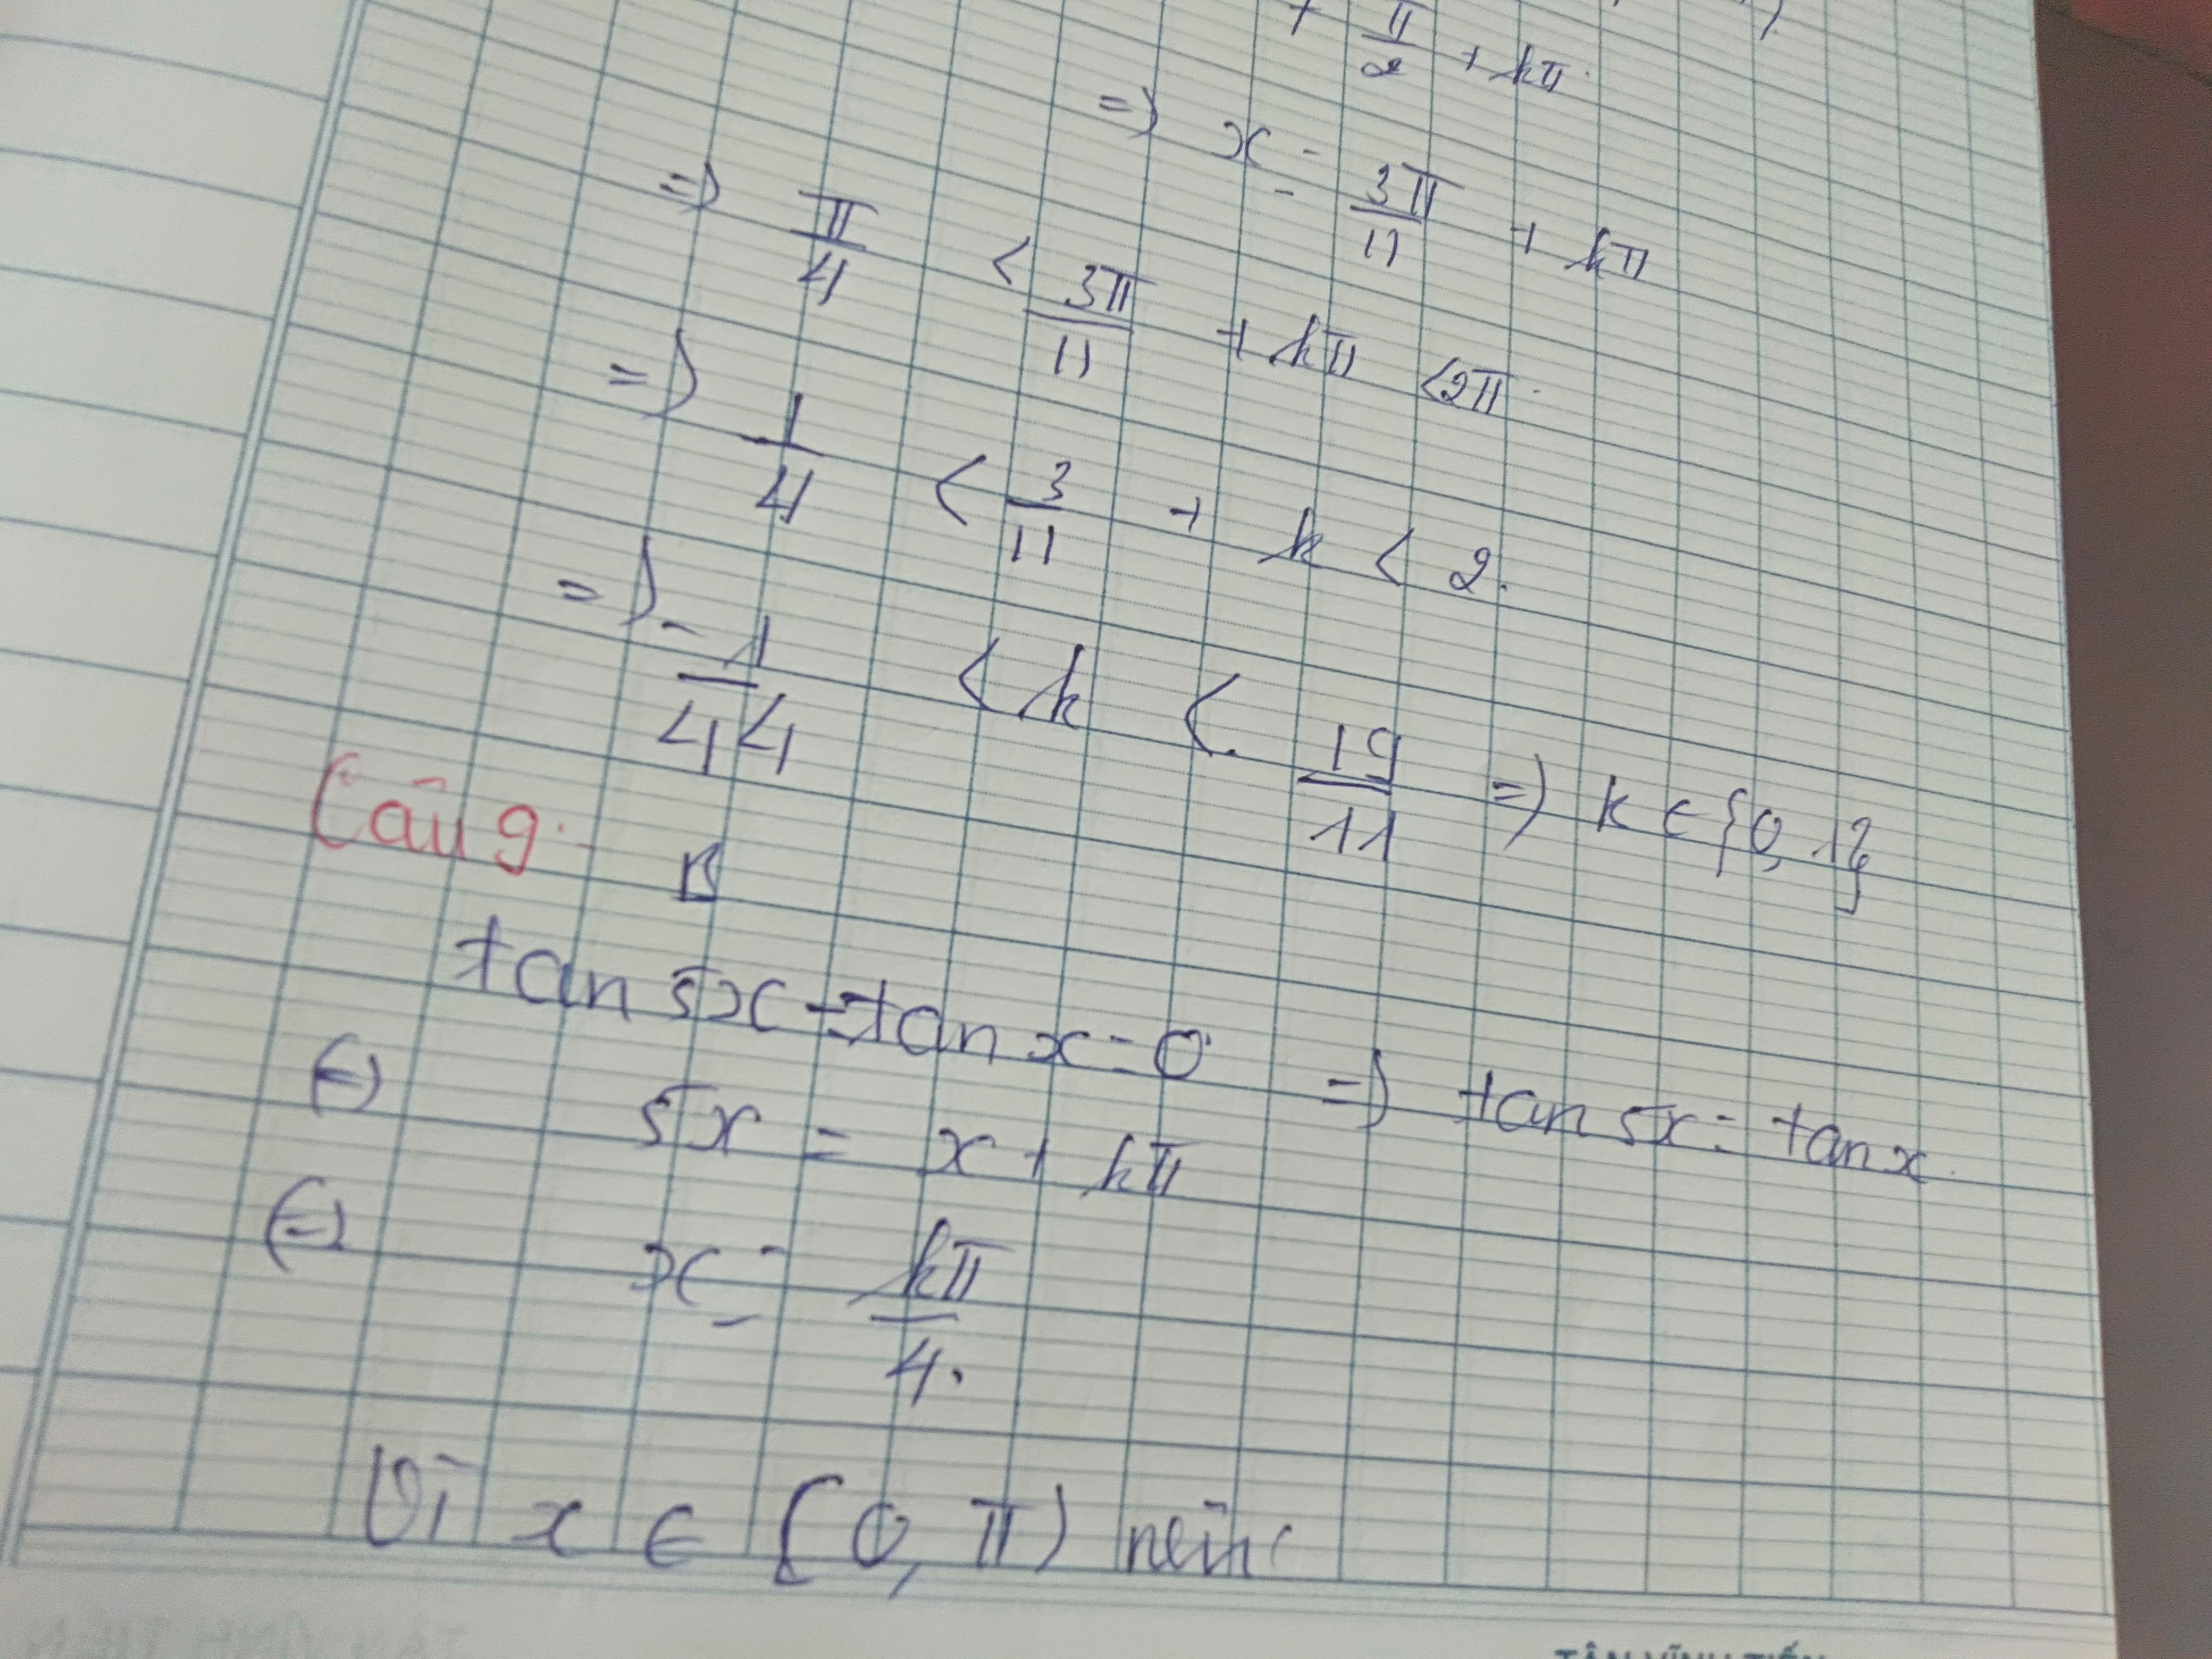 + π/2 + kπ.
=> x = 3π/11 + kπ
=> π/4 < 3π/11 + kπ < 2π.
=> 1/4 < 3/11 + k < 2.
=> -1/44 < k < 19/11 => k ∈ {0, 1}
Câu 9: B
tan 5x - tan x = 0 => tan 5x = tan x.
(=) 5x = x + kπ
(=) x = kπ/4.
Vì x ∈ [0, π) nên
TÂN VĨNH TIẾN